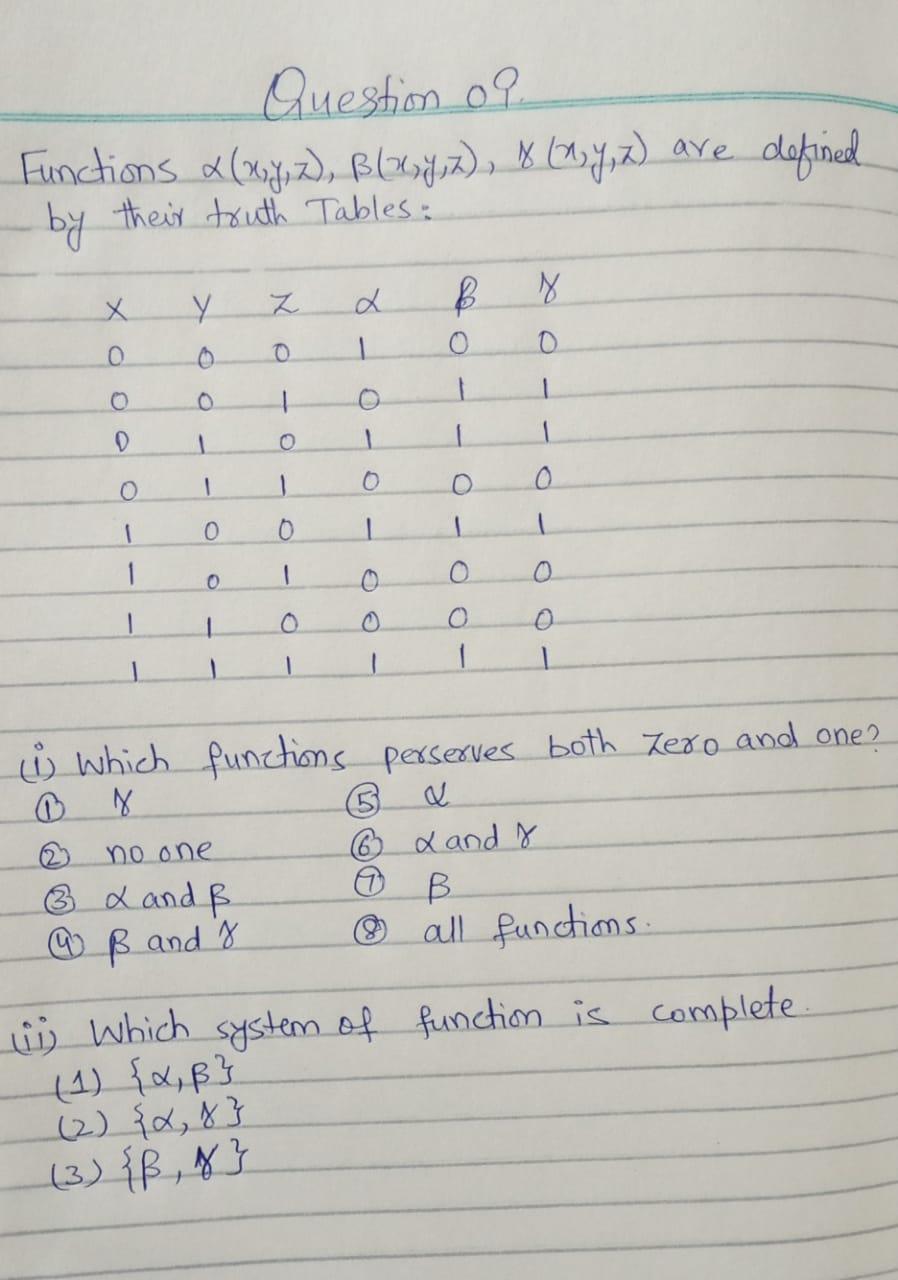 Question 09.
Functions α(x,y,z), β(x,y,z), γ(x,y,z) are defined
by their truth Tables:
X Y Z α β γ
0 0 0 1 0 0
0 0 1 0 1 1
0 1 0 1 1 1
0 1 1 0 0 0
1 0 0 1 1 1
1 0 1 0 0 0
1 1 0 0 0 0
1 1 1 1 1 1
(i) Which functions perserves both zero and one?
① γ ⑤ α
② no one ⑥ α and γ
③ α and β ⑦ β
④ β and γ ⑧ all functions.
(ii) Which system of function is complete.
(1) {α, β}
(2) {α, γ}
(3) {β, γ}